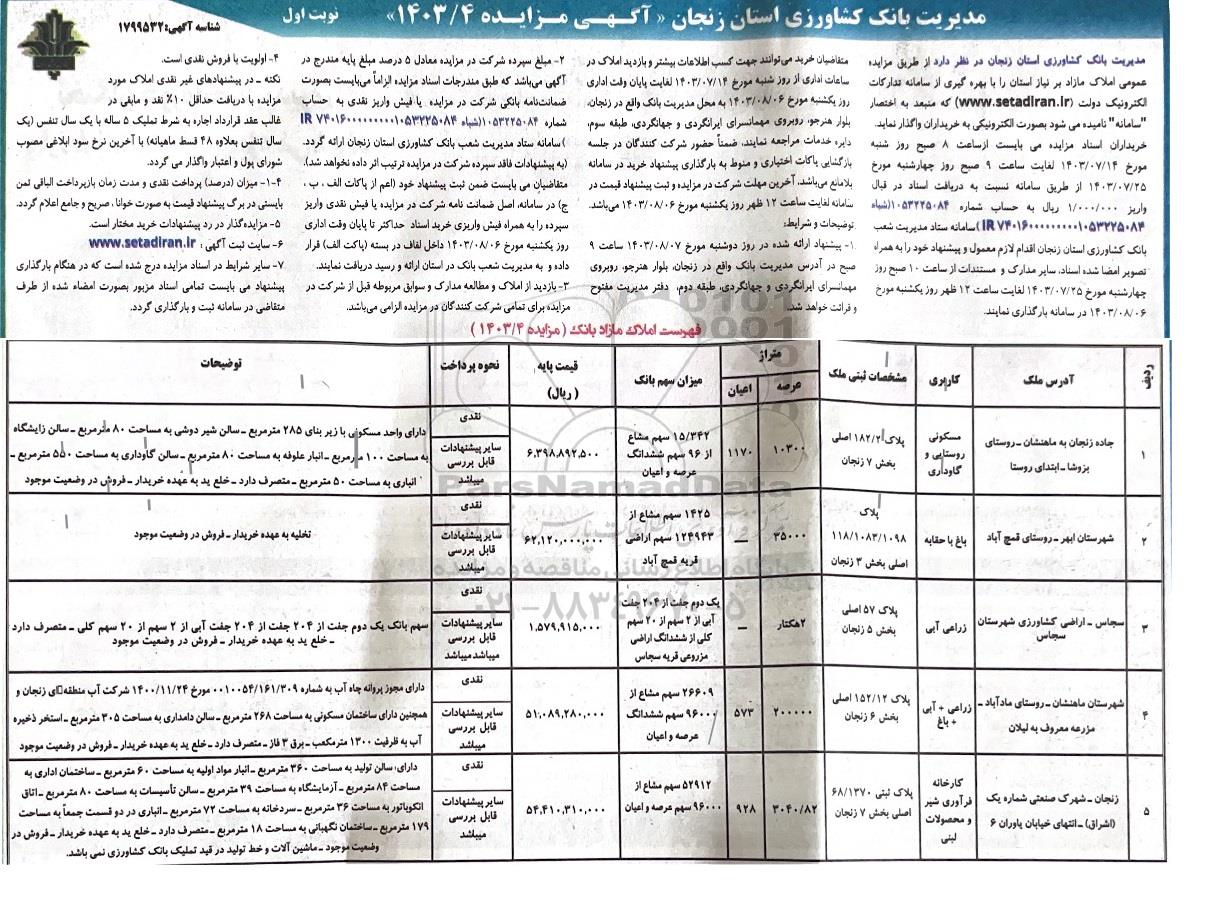 مدیریت بانک کشاورزی استان زنجان « آگهی مزایده ۱۴۰۳/۴»
نوبت اول
شناسه آگهی:۱۷۹۹۵۳۲
مدیریت بانک کشاورزی استان زنجان در نظر دارد از طریق مزایده
عمومی املاک مازاد بر نیاز استان را با بهره گیری از سامانه تدارکات
الکترونیک دولت (www.setadiran.ir) که منبعد به اختصار
"سامانه" نامیده می شود بصورت الکترونیکی به خریداران واگذار نماید.
خریداران اسناد مزایده می بایست ازساعت ۸ صبح روز شنبه
مورخ ۱۴۰۳/۰۷/۱۴ لغایت ساعت ۹ صبح روز چهارشنبه مورخ
۱۴۰۳/۰۷/۲۵ از طریق سامانه نسبت به دریافت اسناد در قبال
واریز ۱/۰۰۰/۰۰۰ ریال به حساب شماره ۱۰۵۳۲۲۵۰۸۴(شباء
IR ۷۴۰۱۶۰۰۰۰۰۰۰۰۰۱۰۵۳۲۲۵۰۸۴ )سامانه ستاد مدیریت شعب
بانک کشاورزی استان زنجان اقدام لازم معمول و پیشنهاد خود را به همراه
تصویر امضا شده اسناد، سایر مدارک و مستندات از ساعت ۱۰ صبح روز
چهارشنبه مورخ ۱۴۰۳/۰۷/۲۵ لغایت ساعت ۱۲ ظهر روز یکشنبه مورخ
۱۴۰۳/۰۸/۰۶ در سامانه بارگذاری نمایند.
متقاضیان خرید می‌توانند جهت کسب اطلاعات بیشتر و بازدید املاک در
ساعات اداری از روز شنبه مورخ ۱۴۰۳/۰۷/۱۴ لغایت پایان وقت اداری
روز یکشنبه مورخ ۱۴۰۳/۰۸/۰۶ به محل مدیریت بانک واقع در زنجان،
بلوار هنرجو، روبروی مهمانسرای ایرانگردی و جهانگردی، طبقه سوم،
دایره خدمات مراجعه نمایند، ضمناً حضور شرکت کنندگان در جلسه
بازگشایی پاکات اختیاری و منوط به بارگذاری پیشنهاد خرید در سامانه
بلامانع می‌باشد. آخرین مهلت شرکت در مزایده و ثبت پیشنهاد قیمت در
سامانه لغایت ساعت ۱۲ ظهر روز یکشنبه مورخ ۱۴۰۳/۰۸/۰۶ می‌باشد.
توضیحات و شرایط:
۱- پیشنهاد ارائه شده در روز دوشنبه مورخ ۱۴۰۳/۰۸/۰۷ ساعت ۹
صبح در آدرس مدیریت بانک واقع در زنجان، بلوار هنرجو، روبروی
مهمانسرای ایرانگردی و جهانگردی، طبقه دوم، دفتر مدیریت مفتوح
و قرائت خواهد شد.
۲- مبلغ سپرده شرکت در مزایده معادل ۵ درصد مبلغ پایه مندرج در
آگهی می‌باشد که طبق مندرجات اسناد مزایده الزاماً می‌بایست بصورت
ضمانت‌نامه بانکی شرکت در مزایده یا فیش واریز نقدی به حساب
شماره ۱۰۵۳۲۲۵۰۸۴(شباء IR ۷۴۰۱۶۰۰۰۰۰۰۰۰۰۱۰۵۳۲۲۵۰۸۴
)سامانه ستاد مدیریت شعب بانک کشاورزی استان زنجان ارائه گردد.
(به پیشنهادات فاقد سپرده شرکت در مزایده ترتیب اثر داده نخواهد شد).
متقاضیان می بایست ضمن ثبت پیشنهاد خود (اعم از پاکات الف ، ب ،
ج) در سامانه، اصل ضمانت نامه شرکت در مزایده یا فیش نقدی واریز
سپرده را به همراه فیش واریزی خرید اسناد حداکثر تا پایان وقت اداری
روز یکشنبه مورخ ۱۴۰۳/۰۸/۰۶ داخل لفاف در بسته (پاکت الف) قرار
داده و به مدیریت شعب بانک در استان ارائه و رسید دریافت نمایند.
۳- بازدید از املاک و مطالعه مدارک و سوابق مربوطه قبل از شرکت در
مزایده برای تمامی شرکت کنندگان در مزایده الزامی می‌باشد.
۴- اولویت با فروش نقدی است.
نکته ـ در پیشنهادهای غیر نقدی املاک مورد
مزایده با دریافت حداقل ۱۰٪ نقد و مابقی در
غالب عقد قرارداد اجاره به شرط تملیک ۵ ساله با یک سال تنفس (یک
سال تنفس بعلاوه ۴۸ قسط ماهیانه) با آخرین نرخ سود ابلاغی مصوب
شورای پول و اعتبار واگذار می گردد.
۴-۱- میزان (درصد) پرداخت نقدی و مدت زمان بازپرداخت الباقی ثمن
بایستی در برگ پیشنهاد قیمت به صورت خوانا، صریح و جامع اعلام گردد.
۵- مزایده‌گذار در رد پیشنهادات خرید مختار است.
۶- سایت ثبت آگهی : www.setadiran.ir
۷- سایر شرایط در اسناد مزایده درج شده است که در هنگام بارگذاری
پیشنهاد می بایست تمامی اسناد مزبور بصورت امضاء شده از طرف
متقاضی در سامانه ثبت و بارگذاری گردد.
فهرست املاک مازاد بانک ( مزایده ۱۴۰۳/۴ )
ردیف آدرس ملک کاربری مشخصات ثبتی ملک متراژ عرصه اعیان میزان سهم بانک قیمت پایه (ریال) نحوه پرداخت توضیحات
۱ جاده زنجان به ماهنشان ـ روستای بزوشا ـ ابتدای روستا
مسکونی روستایی و گاوداری
پلاک ۱۸۲/۲ اصلی بخش ۷ زنجان
۱۰۳۰۰ ۱۱۷۰
۱۵/۳۴۲ سهم مشاع از ۹۶ سهم ششدانگ عرصه و اعیان
۶,۳۹۸,۸۹۲,۵۰۰
نقدی
سایر پیشنهادات قابل بررسی میباشد
دارای واحد مسکونی با زیر بنای ۲۸۵ مترمربع ـ سالن شیر دوشی به مساحت ۸۰ مترمربع ـ سالن زایشگاه
به مساحت ۱۰۰ مترمربع ـ انبار علوفه به مساحت ۸۰ مترمربع ـ سالن گاوداری به مساحت ۵۵۰ مترمربع ـ
انباری به مساحت ۵۰ مترمربع ـ متصرف دارد ـ خلع ید به عهده خریدار ـ فروش در وضعیت موجود
۲ شهرستان ابهر ـ روستای قمچ آباد
باغ با حقابه
پلاک ۱۱۸/۱۰۸۳/۱۰۹۸ اصلی بخش ۳ زنجان
۳۵۰۰۰ —
۱۴۲۵ سهم مشاع از ۱۲۴۹۴۳ سهم اراضی قریه قمچ آباد
۶۲,۱۲۰,۰۰۰,۰۰۰
نقدی
سایر پیشنهادات قابل بررسی میباشد
تخلیه به عهده خریدار ـ فروش در وضعیت موجود
۳ سجاس ـ اراضی کشاورزی شهرستان سجاس
زراعی آبی
پلاک ۵۷ اصلی بخش ۵ زنجان
۲هکتار —
یک دوم جفت از ۲۰۴ جفت آبی از ۲ سهم از ۲۰ سهم کلی از ششدانگ اراضی مزروعی قریه سجاس
۱,۵۷۹,۹۱۵,۰۰۰
نقدی
سایر پیشنهادات قابل بررسی میباشد میباشد
سهم بانک یک دوم جفت از ۲۰۴ جفت از ۲۰۴ جفت آبی از ۲ سهم از ۲۰ سهم کلی ـ متصرف دارد
ـ خلع ید به عهده خریدار ـ فروش در وضعیت موجود
۴ شهرستان ماهنشان ـ روستای مادآباد ـ مزرعه معروف به لیلان
زراعی + آبی + باغ
پلاک ۱۵۲/۱۲ اصلی بخش ۶ زنجان
۲۰۰۰۰۰ ۵۷۳
۲۶۶۰۹ سهم مشاع از ۹۶۰۰۰ سهم ششدانگ عرصه و اعیان
۵۱,۰۸۹,۲۸۰,۰۰۰
نقدی
سایر پیشنهادات قابل بررسی میباشد
دارای مجوز پروانه چاه آب به شماره ۰۰۱۰۰۵۴/۱۶۱/۳۰۹ مورخ ۱۴۰۰/۱۱/۲۴ شرکت آب منطقه‌ای زنجان و
همچنین دارای ساختمان مسکونی به مساحت ۲۶۸ مترمربع ـ سالن دامداری به مساحت ۳۰۵ مترمربع ـ استخر ذخیره
آب به ظرفیت ۱۳۰۰ مترمکعب ـ برق ۳ فاز ـ متصرف دارد ـ خلع ید به عهده خریدار ـ فروش در وضعیت موجود
۵ زنجان ـ شهرک صنعتی شماره یک (اشراق) ـ انتهای خیابان یاوران ۶
کارخانه فرآوری شیر و محصولات لبنی
پلاک ثبتی ۶۸/۱۳۷۰ اصلی بخش ۷ زنجان
۳۰۴۰/۸۲ ۹۲۸
۵۲۹۱۲ سهم مشاع از ۹۶۰۰۰ سهم عرصه و اعیان
۵۴,۴۱۰,۳۱۰,۰۰۰
نقدی
سایر پیشنهادات قابل بررسی میباشد
دارای سالن تولید به مساحت ۳۶۰ مترمربع ـ انبار مواد اولیه به مساحت ۶۰ مترمربع ـ ساختمان اداری به
مساحت ۸۴ مترمربع ـ آزمایشگاه به مساحت ۳۹ مترمربع ـ سالن تأسیسات به مساحت ۸۰ مترمربع ـ اتاق
انکوباتور به مساحت ۳۶ مترمربع ـ سردخانه به مساحت ۷۲ مترمربع ـ انباری در دو قسمت جمعاً به مساحت
۱۷۹ مترمربع ـ ساختمان نگهبانی به مساحت ۱۸ مترمربع ـ متصرف دارد ـ خلع ید به عهده خریدار ـ فروش در
وضعیت موجود ـ ماشین آلات و خط تولید در قید تملیک بانک کشاورزی نمی باشد.
ParsNamadData
پایگاه اطلاع رسانی مناقصه و مزایده
۰۲۱-۸۸۳۴۹۶۷۰-۵